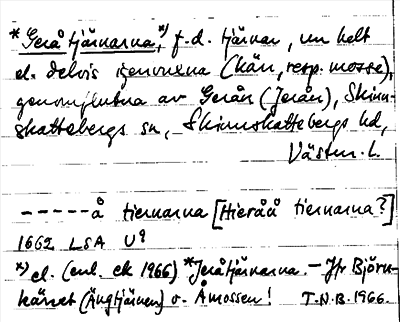 *Geråtjärnarna,*) f.d. tjärnar, nu helt
el. delvis igenvuxna (kärr, resp. mosse),
genomflutna av Gerån (Jerån), Skinn-
skattebergs sn, Skinnskattebergs hd,
Västm. l.
-----å tiernarna [Hieråå tiernarna?]
1662 LSA U9
*) el. (enl. ek 1966) *Jeråtjärnarna. – Jfr Björn-
kärret (Ängtjärnen) o. Åmossen! T.N.B. 1966.